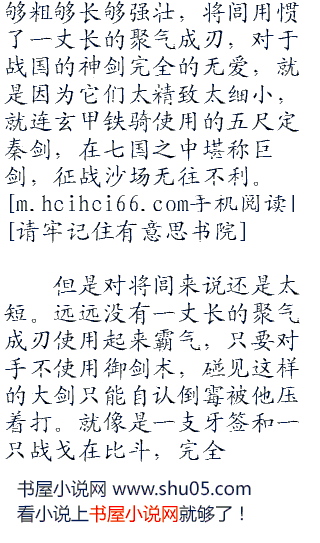 够粗够长够强壮，将闾用惯
了一丈长的聚气成刃，对于
战国的神剑完全的无爱，就
是因为它们太精致太细小，
就连玄甲铁骑使用的五尺定
秦剑，在七国之中堪称巨
剑，征战沙场无往不利。
[m.hcihci66.com手机阅读|
[请牢记住有意思书院]
但是对将闾来说还是太
短。远远没有一丈长的聚气
成刃使用起来霸气，只要对
手不使用御剑术，碰见这样
的大剑只能自认倒霉被他压
着打。就像是一支牙签和一
只战戈在比斗，完全
书屋小说网 www.shu05.com
看小说上书屋小说网就够了！